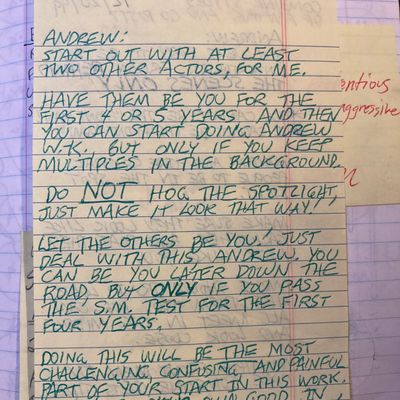 ANDREW:
START OUT WITH AT LEAST
TWO OTHER ACTORS, FOR ME.
HAVE THEM BE YOU FOR THE
FIRST 4 OR 5 YEARS AND THEN
YOU CAN START DOING ANDREW
W.K. BUT ONLY IF YOU KEEP
MULTIPLES IN THE BACKGROUND.
DO NOT HOG THE SPOTLIGHT,
JUST MAKE IT LOOK THAT WAY!
LET THE OTHERS BE YOU! JUST
DEAL WITH THIS, ANDREW. YOU
CAN BE YOU LATER DOWN THE
ROAD, BUT ONLY IF YOU PASS
THE S.M. TEST FOR THE FIRST
FOUR YEARS.
DOING THIS WILL BE THE MOST
CHALLENGING, CONFUSING, AND PAINFUL
PART OF YOUR START IN THIS WORK.
YOUR OWN GOOD IN
entious
aggressive